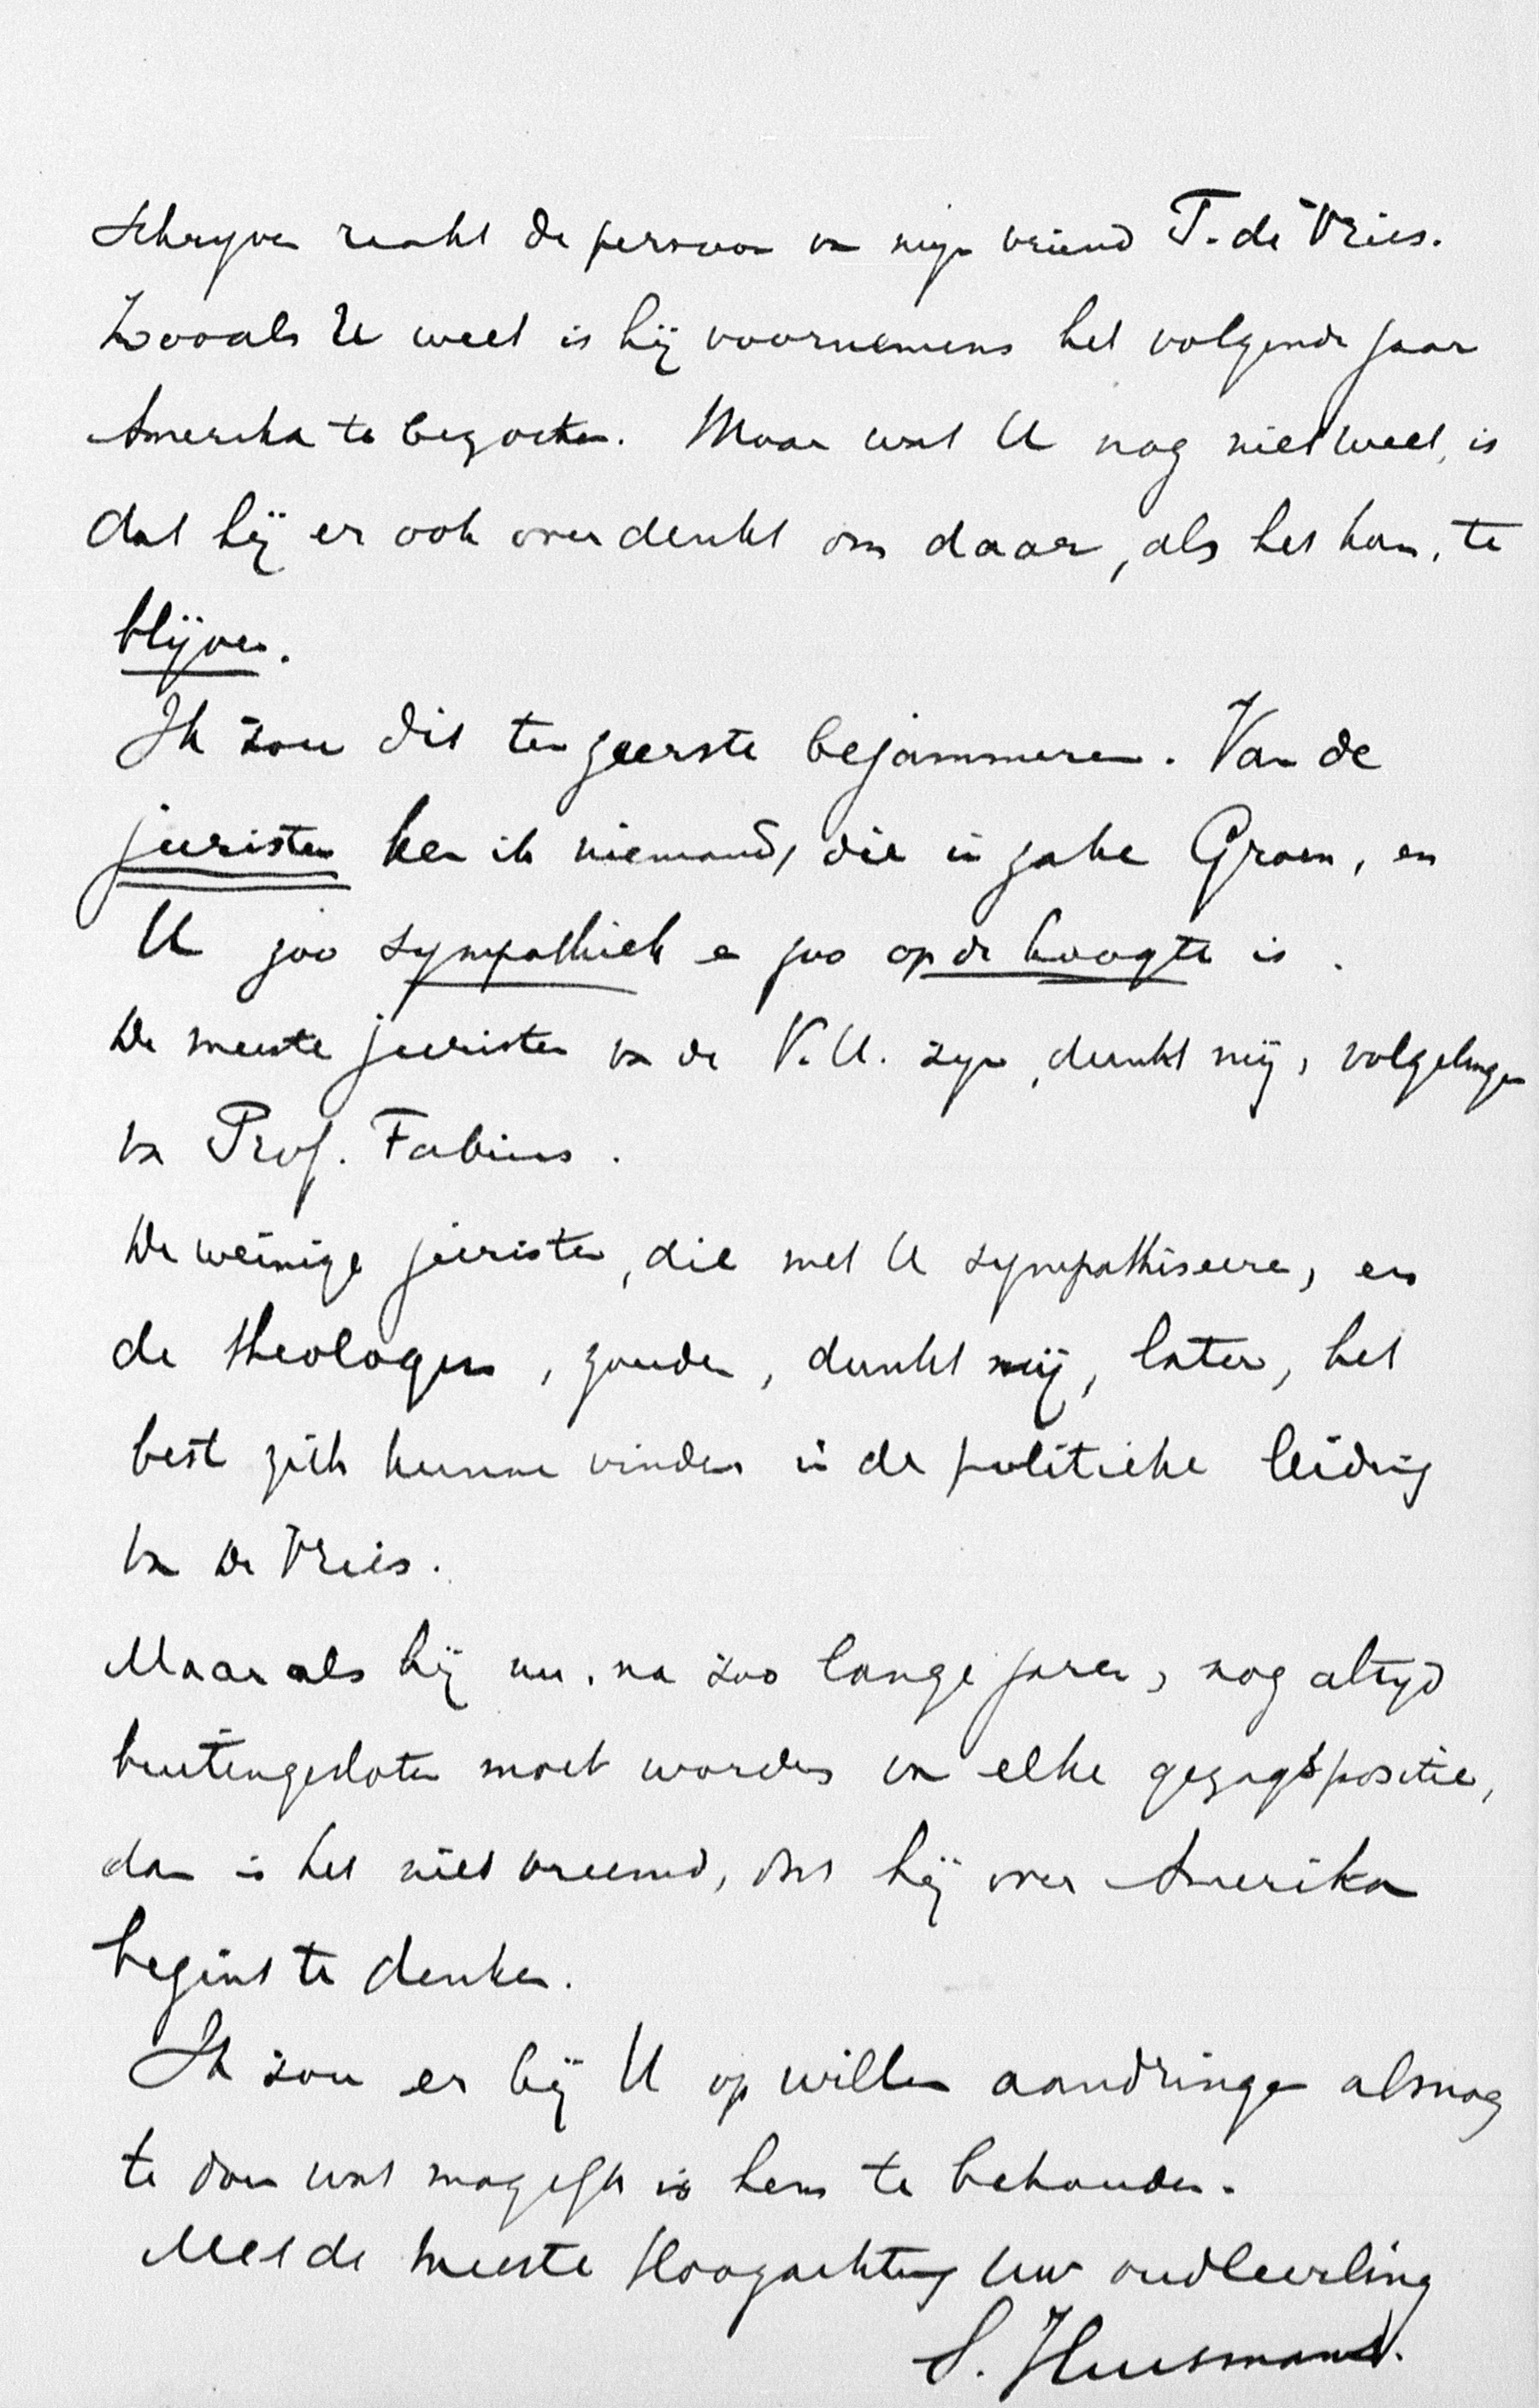 schrijven raakt de persoon van mijn vriend T. de Vries.
Zooals U weet is hij voornemens het volgende jaar
Amerika te bezoeken. Maar wat U nog niet weet, is
dat hij er ook over denkt om daar, als het kan, te
blijven.
Ik zou dit ten zeerste bejammeren. Van de
juristen ken ik niemand, die in zake Groen, en
U zoo sympathiek en zoo op de hoogte is.
De meeste juristen van de V.U. zijn, dunkt mij, volgelingen
van Prof. Fabius.
De weinige juristen, die met U sympathiseeren, en
de theologen, zouden, dunkt mij, later, het
best zich kunnen vinden in de politieke leiding
van de Vries.
Maar als hij nu, na zoo lange jaren, nog altijd
buitengesloten moet worden van elke gezagspositie,
dan is het niet vreemd, dat hij over Amerika
begint te denken.
Ik zou er bij U op willen aandringen alsnog
te doen wat mogelijk is hem te behouden.
Met de meeste Hoogachting Uw oudleerling
S. Huismans.